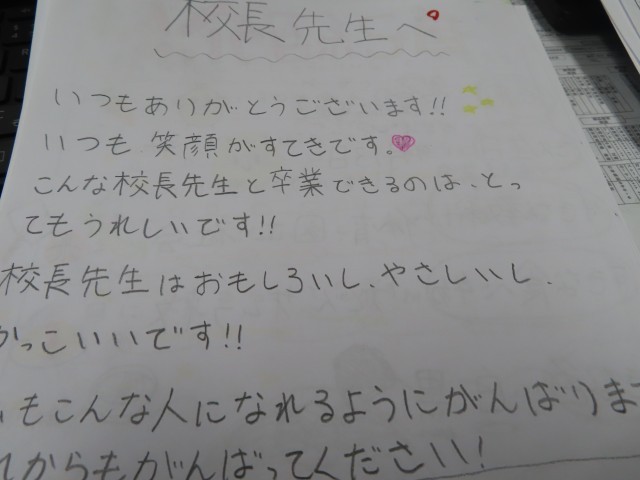 校長先生へ
いつもありがとうございます!!
いつも笑顔がすてきです。
こんな校長先生と卒業できるのは、とっ
てもうれしいです!!
校長先生はおもしろいし、やさしいし、
かっこいいです!!
もこんな人になれるようにがんばりま
からもがんばってください!